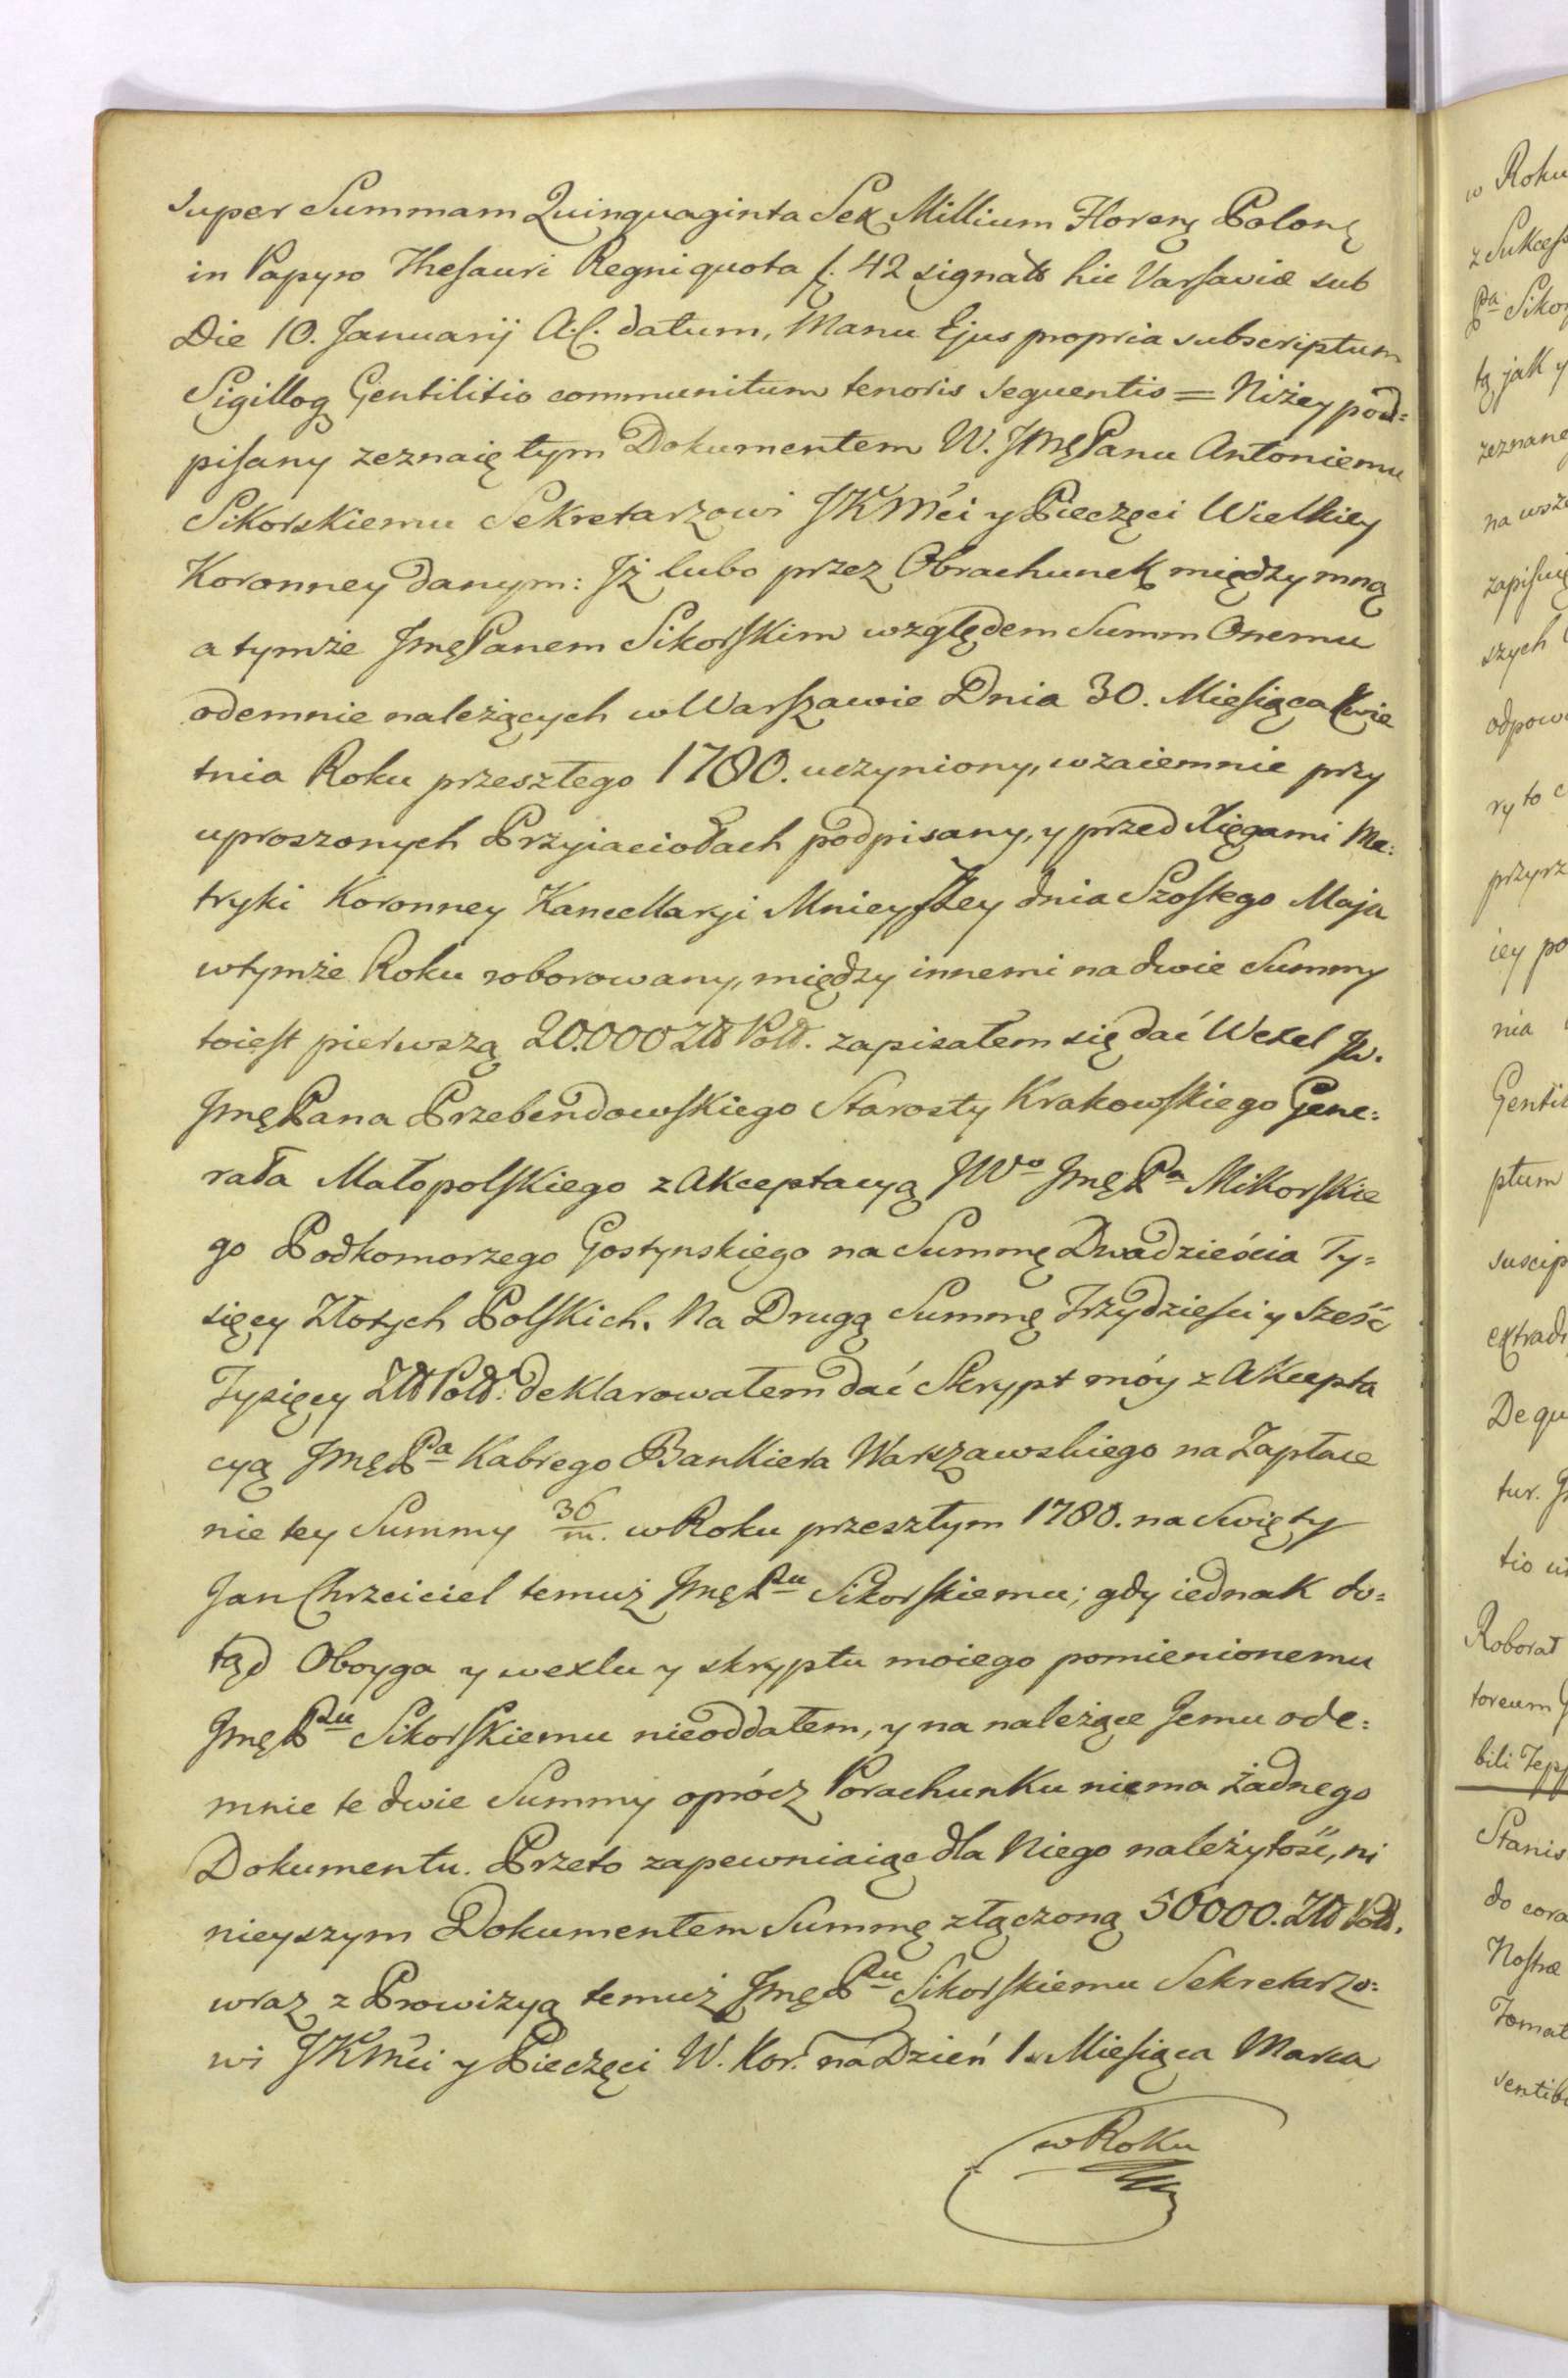 super Summam Quinquaginta Sex Millium Floren Polon
in Papyro Thesauri Regni quota f. 42 signato hic Varsaviæ sub
Die 10. Januarij A.C. datum, Manu Ejus propria subscriptum
Sigilloq Gentilitio communitum tenoris sequentis = Niżey pod=
pisany zeznaię tym Dokumentem W. JmęPanu Antoniemu
Sikorskiemu Sekretarzowi JKMći y Pieczęci Wielkiey
Koronney danym: Jż lubo przez Obrachunek między mną
a tymże JmęPanem Sikorskim względem Summ Onemu
odemnie należących w Warszawie Dnia 30. Miesiąca Kwie
tnia Roku przeszłego 1780. uczyniony, wzaiemnie przy
uproszonych Przyiaciołach podpisany, y przed Xięgami Me:
tryki Koronney Kancellaryi Mnieyszey dnia Szostego Maja
wtymże Roku roborowany, między innemi na dwie Summy
toiest pierwszą 20.000 Złł Poll. zapisałem się dać Wexel Jw.
JmęPana Przebendowskiego Starosty Krakowskiego Gene:
rała Małopolskiego z Akceptacyą JWo JmęPa Mikorskie
go Podkomorzego Gostynskiego na Summę Dwadzieścia Ty=
sięcy Złotych Polskich. Na Drugą Summę Trzydzieści y sześć
Tysięcy Złł Poll: deklarowałem dać Skrypt móy z Akcepta
cyą JmęPa Kabrego Bankiera Warszawskiego na Zapłace
nie tey Summy 36/m. w Roku przeszłym 1780. na Swięty
Jan Chrzciciel temuż JmęPu Sikorskiemu; gdy iednak do=
tąd Oboyga y wexlu y skryptu moiego pomienionemu
JmęPu Sikorskiemu nieoddałem, y na należące Jemu ode=
mnie te dwie Summy oprócz Porachunku niema żadnego
Dokumentu. Przeto zapewniaiąc dla Niego należytość, ni
nieyszym Dokumentem Summę złączoną 56000. Złł Poll.
wraz z Prowizyą temuż JmęPu Sikorskiemu Sekretarzo=
wi JKMći y Pieczęci W. Kor. na Dzień 1. Miesiąca Marca
w Roku
w Roku
z Sukcess
Pa Sikor
tą jak y
zeznane
na wsze
zapisuię
szych
odpow
ry to
przyrz
iey po
nia
Gentil
ptum
suscip
extrad
De qu
tur.
tio
Roborat
toreum
bili
Stanis
do cora
Nostræ
sentib